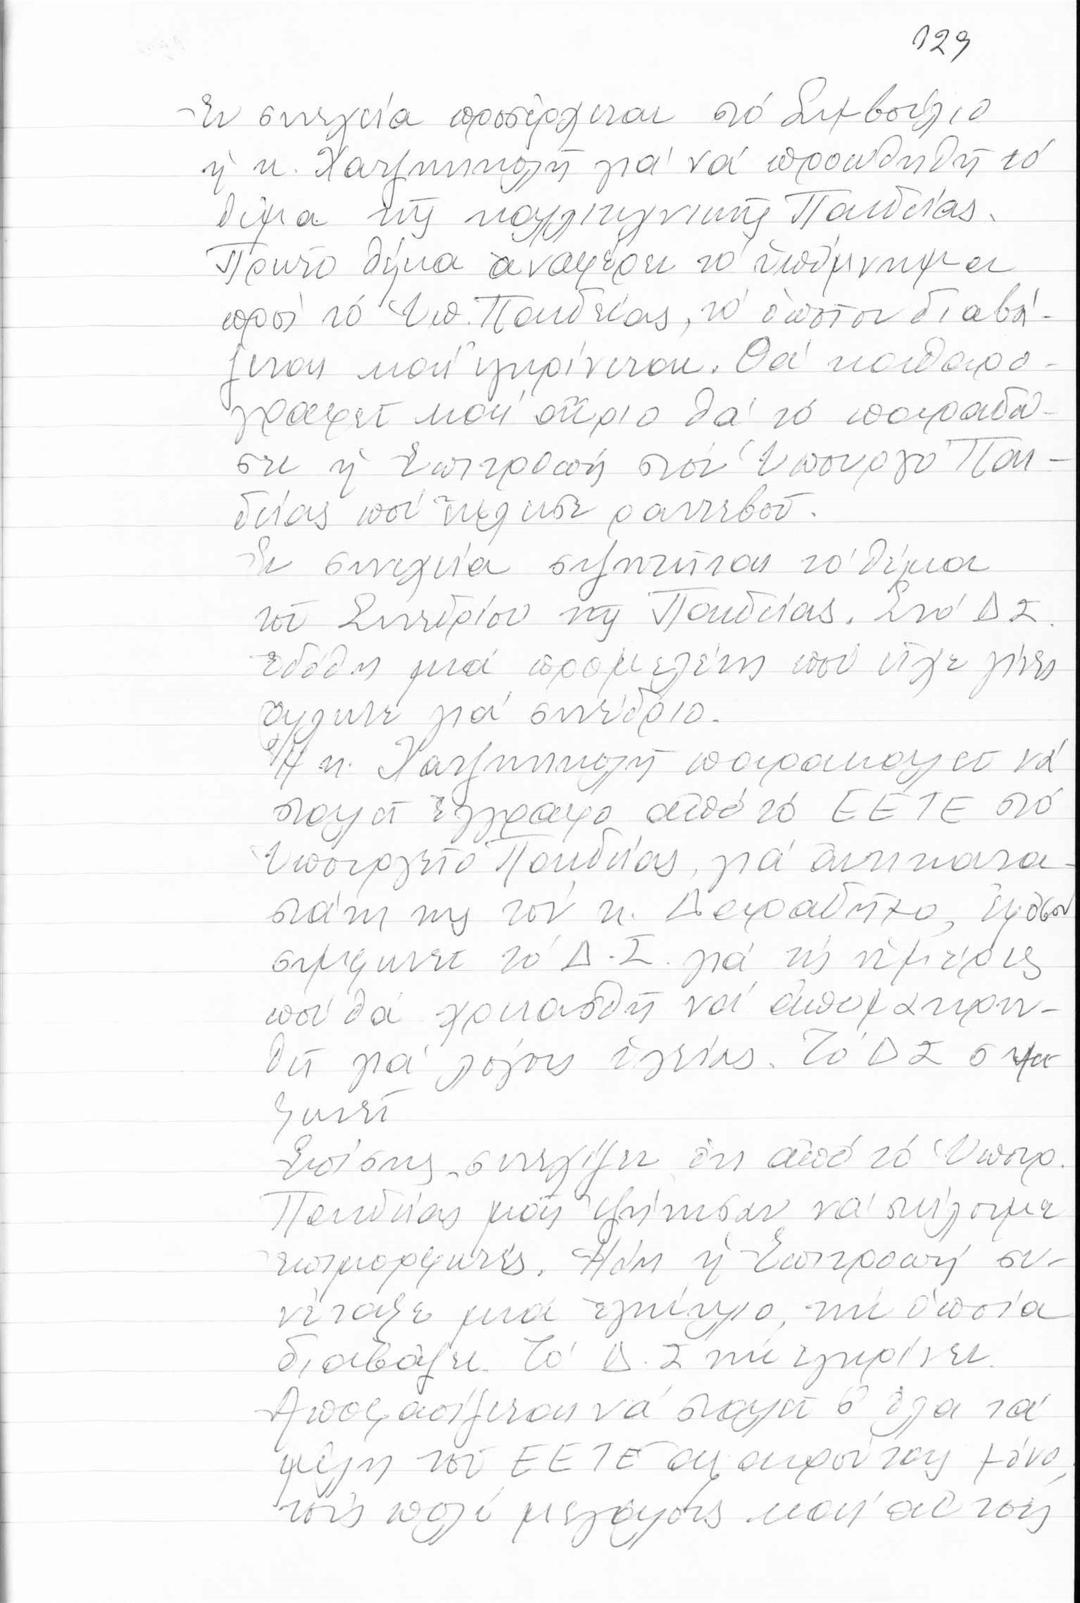 129
Ἐν συνεχεία προσέρχεται στό Συμβούλιο
ἡ κ. Χατζηνικολῆ γιά νά προωθηθῆ τό
θέμα τῆς καλλιτεχνικῆς Παιδείας.
Πρῶτο θέμα ἀναφέρει τό ὑπόμνημα
πρός τό Ὑπ. Παιδείας, τό ὁποῖον διαβά-
ζεται καί ἐγκρίνεται. Θά καθαρο-
γραφεῖ καί αὔριο θά τό παραδώ-
σει ἡ Ἐπιτροπή στόν Ὑπουργό Παι-
δείας πού ἔκλεισε ραντεβοῦ.
Ἐν συνεχεία συζητεῖται τό θέμα
τοῦ Συνεδρίου τῆς Παιδείας. Στό Δ Σ.
ἐδόθη μιά προμελέτη πού εἶχε γίνει
γιά συνέδριο.
Ἡ κ. Χατζηνικολῆ παρακαλεῖ νά
σταλεῖ ἔγγραφο ἀπό τό ΕΕΤΕ στό
Ὑπουργεῖο Παιδείας, γιά ἀντικατα-
στάτη της τόν κ. ἐφόσον
συμφωνεῖ τό Δ.Σ. γιά τίς ἡμέρες
πού θά χρειασθῆ νά ἀπομακρυν-
θεῖ γιά λόγους ὑγείας. Τό Δ Σ συμ
φωνεῖ
Ἐπίσης συνεχίζει ὅτι ἀπό τό Ὑπουρ.
Παιδείας μᾶς ἐζήτησαν νά στείλουμε
ἐπιμορφωτές. Ἤδη ἡ Ἐπιτροπή συ-
νέταξε μιά ἐγκύκλιο, τήν ὁποία
διαβάζει. Τό Δ.Σ τήν ἐγκρίνει.
Ἀποφασίζεται νά σταλεῖ σ' ὅλα τά
μέλη τοῦ ΕΕΤΕ μόνο
τούς πολύ μεγάλους καί αὐτούς